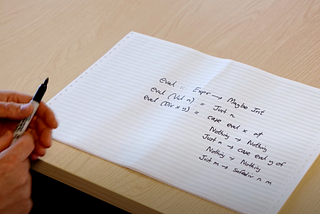 eval :: Expr → Maybe Int
eval (Val n) = Just n
eval (Div x y) = case eval x of
Nothing → Nothing
Just n → case eval y of
Nothing → Nothing
Just m → safediv n m